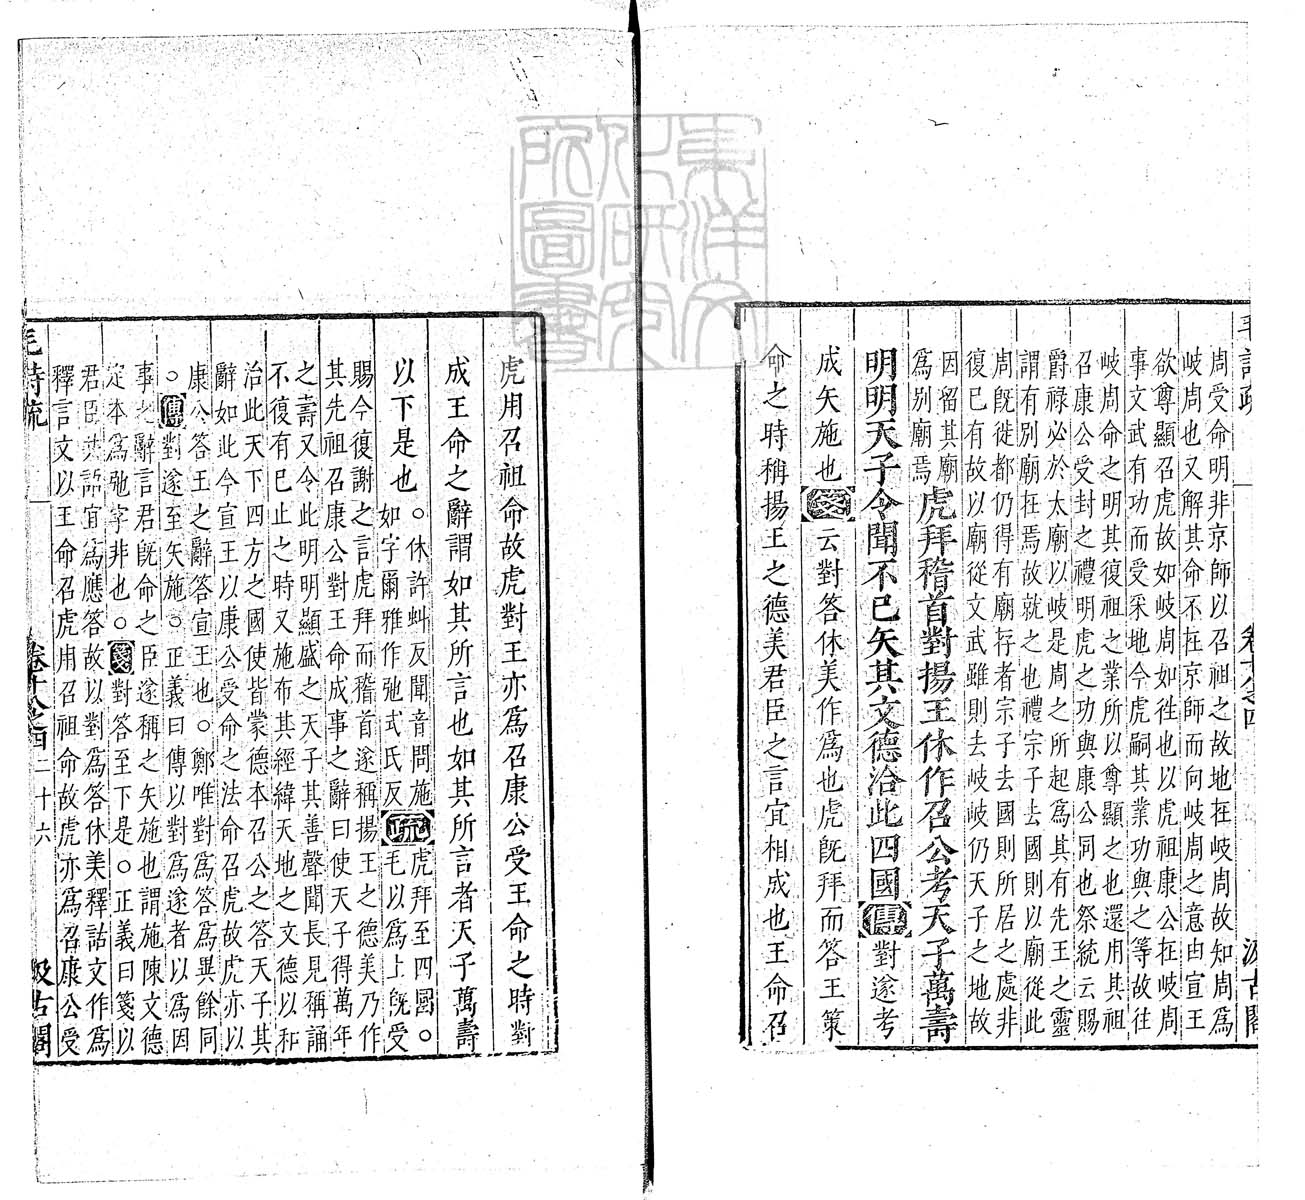 毛詩疏 卷十八之四 汲古閣
周受命明非京師以召祖之故地在岐周故知周爲
岐周也又解其命不在京師而向岐周之意由宣王
欲尊顯召虎故如岐周如徃也以虎祖康公在岐周
事文武有功而受采地今虎嗣其業功與之等故往
岐周命之明其復祖之業所以尊顯之也還用其祖
召康公受封之禮明虎之功與康公同也祭統云賜
爵祿必於太廟以岐是周之所起爲其有先王之靈
謂有別廟在焉故就之也禮宗子去國則以廟從此
周既徙都仍得有廟存者宗子去國則所居之處非
復已有故以廟從文武雖則去岐岐仍天子之地故
因留其廟
爲別廟焉
虎拜稽首對揚王休作召公考天子萬壽
明明天子令聞不已矢其文德洽此四國傳對遂考
成矢施也箋云對答休美作爲也虎旣拜而答王策
命之時稱揚王之德美君臣之言宜相成也王命召
虎用召祖命故虎對王亦爲召康公受王命之時對
成王命之辭謂如其所言也如其所言者天子萬壽
以下是也
。休許虯反聞音問施
如字爾雅作弛式氏反
疏
虎拜至四國。
毛以爲上旣受
賜今復謝之言虎拜而稽首遂稱揚王之德美乃作
其先祖召康公對王命成事之辭曰使天子得萬年
之壽又今此明明顯盛之天子其善聲聞長見稱誦
不復有已止之時又施布其經緯天地之文德以和
治此天下四方之國使皆蒙德本召公之答天子其
辭如此今宣王以康公受命之法命召虎故虎亦以
康公答王之辭答宣王也。鄭唯對爲答爲異餘同
。傳對遂至矢施。正義曰傳以對爲遂者以爲因
事之辭言君旣命之臣遂稱之矢施也謂施陳文德
定本爲弛字非也。箋對答至下是。正義曰箋以
君臣共語宜爲應答故以對爲答休美釋詁文作爲
釋言文以王命召虎用召祖命故虎亦爲召康公受
毛詩疏 卷十八之四 二十六 汲古閣
東洋文化研究所圖書